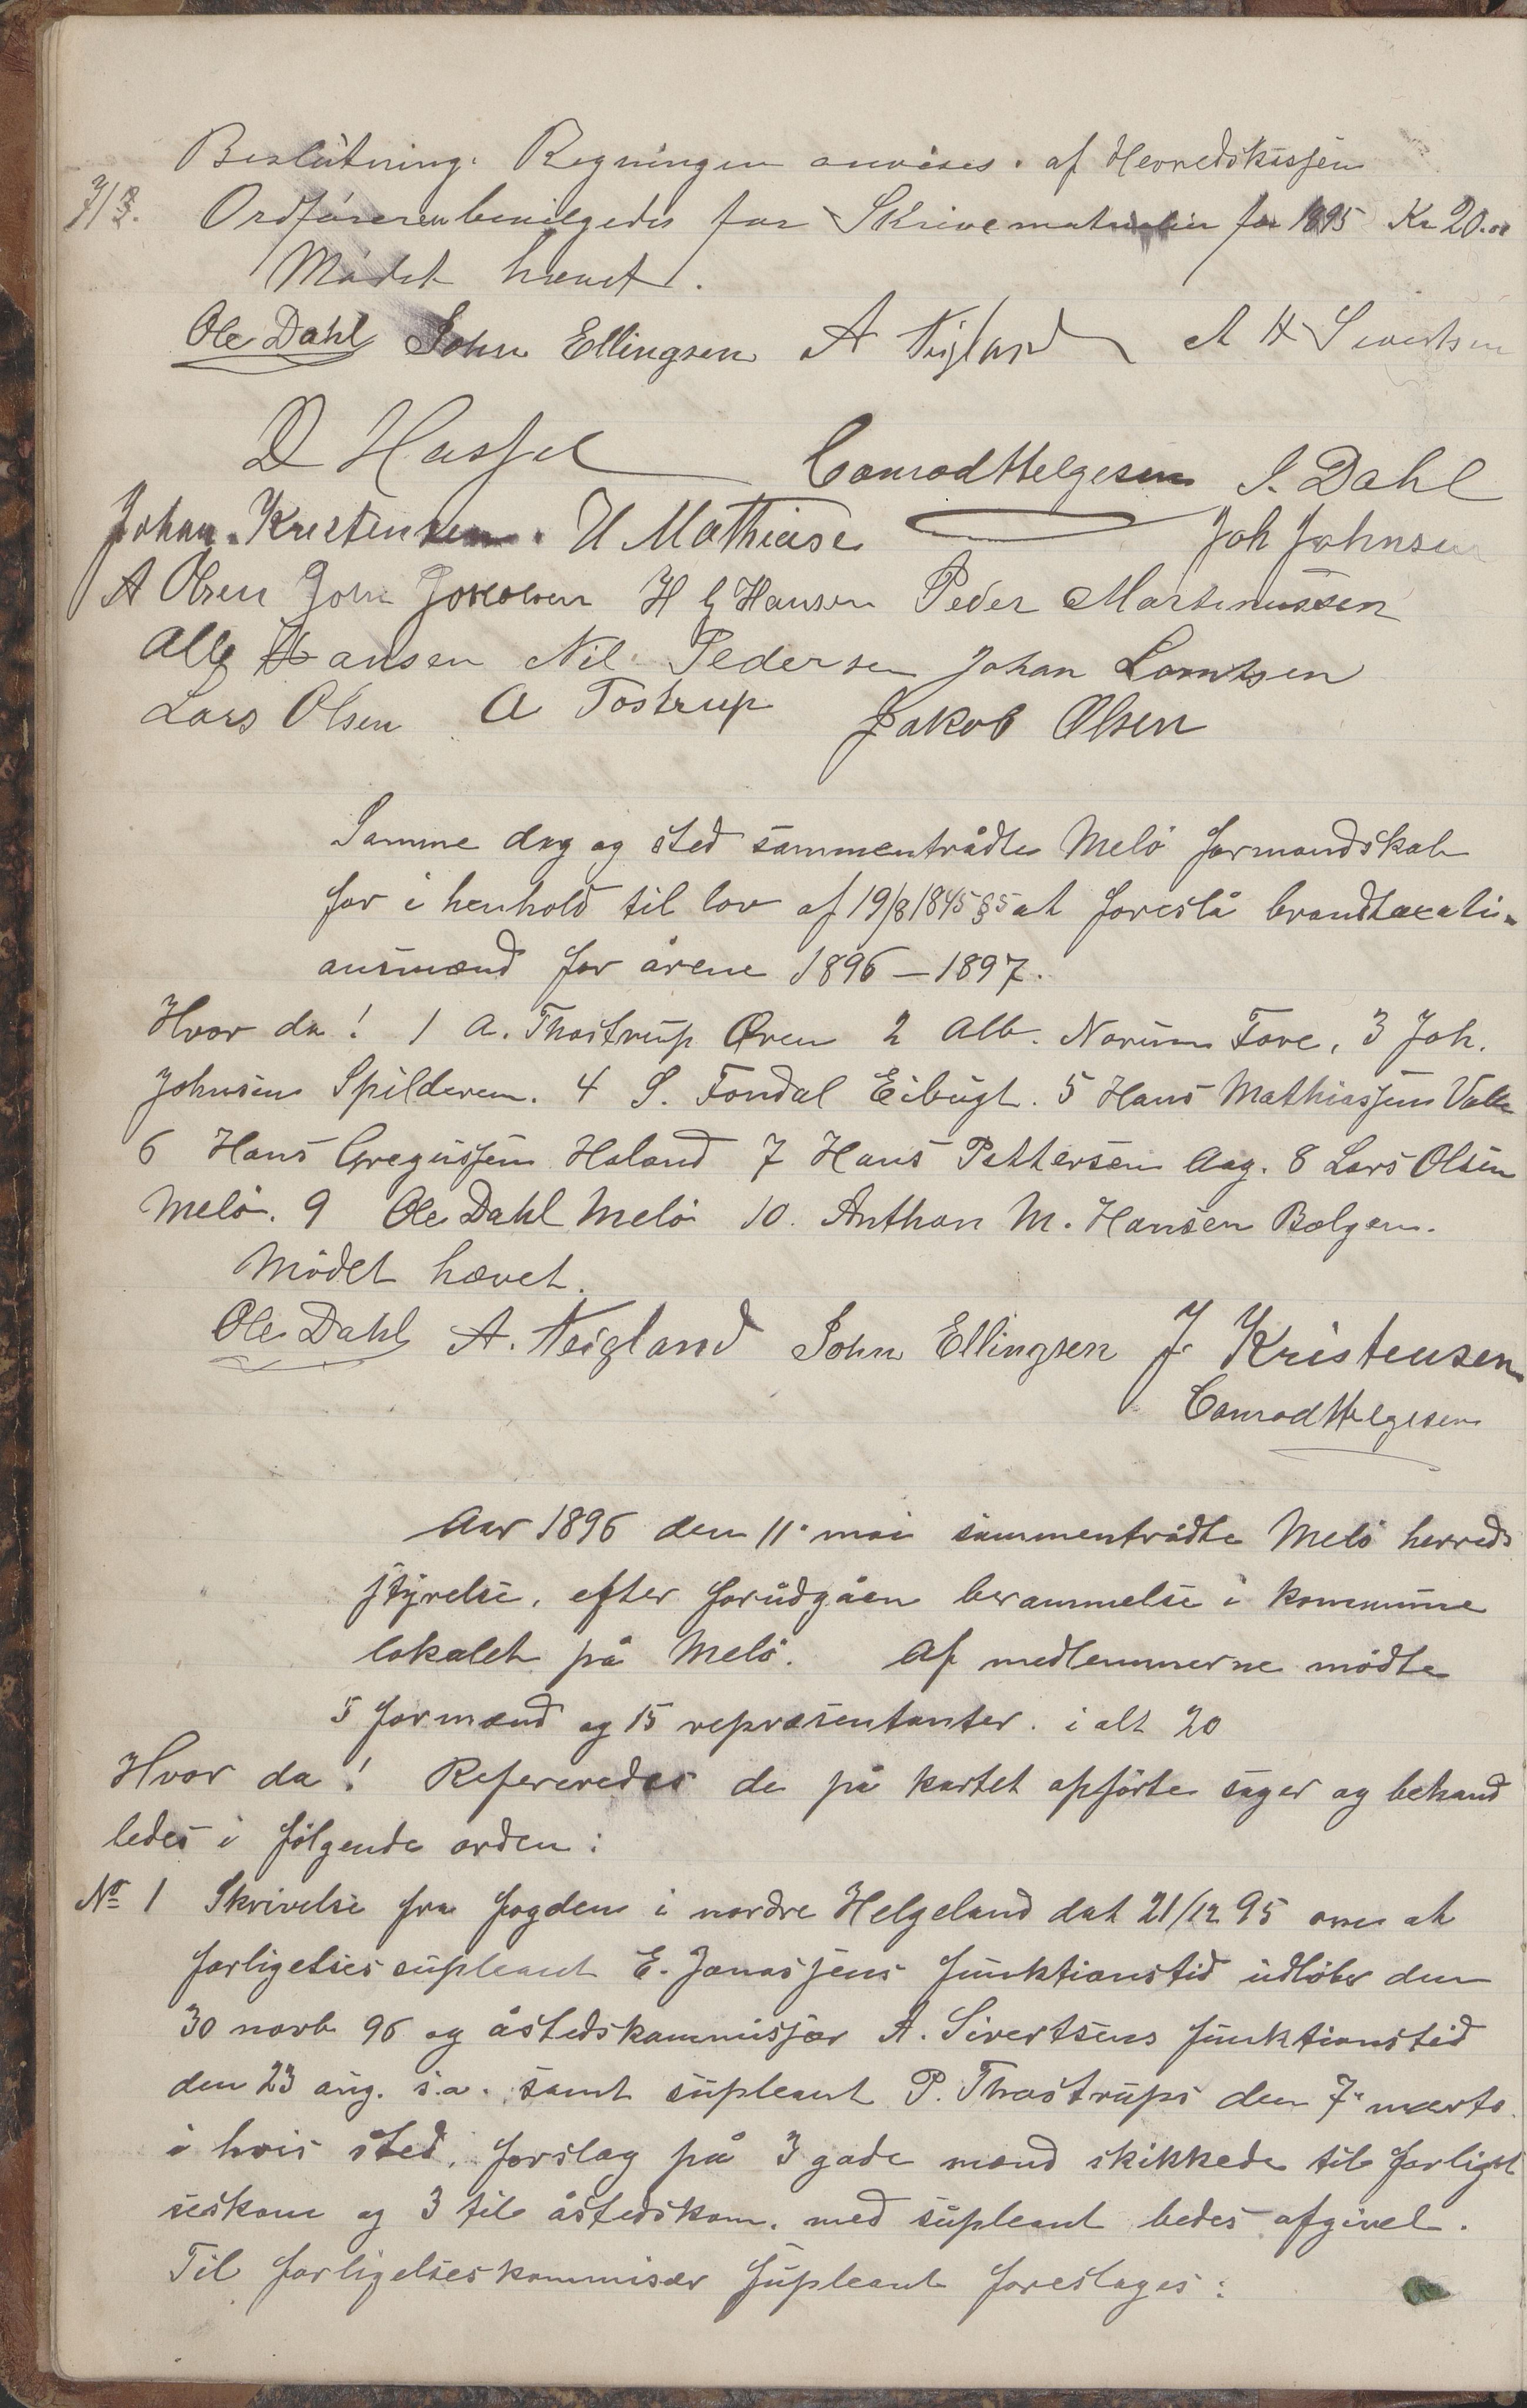 Beslutning. Regningen anvises. af Herredskassen
7/8. Ordføreren bevilgedes for Skrivematerialier for 1895 Kr 20.00
Mødet hævet.
Ole Dahl John Ellingsen A Neigland A H Sivertsen
D Hassel Conrad Helgesen S. Dahl
Johan Kristensen. H Mathiase Joh Johnsen
A Olsen John Jakobsen H G Hansen Peder Martinussen
Alb Hansen Nil Pedersen Johan Lorntsen
Lars Olsen A Tostrup Jakob Olsen
Samme dag og sted sammentrådte Melö formandskab
for i henhold til lov af 19/8 1845 §5 at foreslå brandtaxati-
onsmænd for årene 1896 – 1897.
Hvor da! 1 A. Thostrup Øren 2 Alb. Norum Fore, 3 Joh.
Johnsen Spilderen. 4 S. Fondal Eibugt. 5 Hans Mathiassen Valle
6 Hans Gregussen Haland 7 Hans Pettersen Aag. 8 Lars Olsen
Melö. 9 Ole Dahl Melö 10. Anthon M. Hansen Bolgen.
Mödet hævet.
Ole Dahl A. Neigland John Ellingsen J Kristensen
Conrad Helgesen
Aar 1896 den 11. mai sammentrådte Melö herreds
styrelse, efter forudgåen berammelse i kommune
lokalet på Melö. Af medlemmerne mödte
5 formænd og 15 repræsentanter. i alt 20
Hvor da! Refereredes de på kartet opförte sager og behand
ledes i fölgende orden:
No 1 Skrivelse fra fogden i nordre Helgeland dat 21/12 95 om at
forligelses supleant E. Jonassens funktionstid udlöber den
30 novb 96 og åstedskommissær A. Sivertsens funktionstid
den 23 aug. s.a. samt supleant P. Thostrups den 7. marts
i hvis sted. forslag på 3 gode mænd skikkede til forligel
seskom og 3 til åstedskom. med supleant bedes afgivet.
Til forligelseskommisær supleant foreslages: